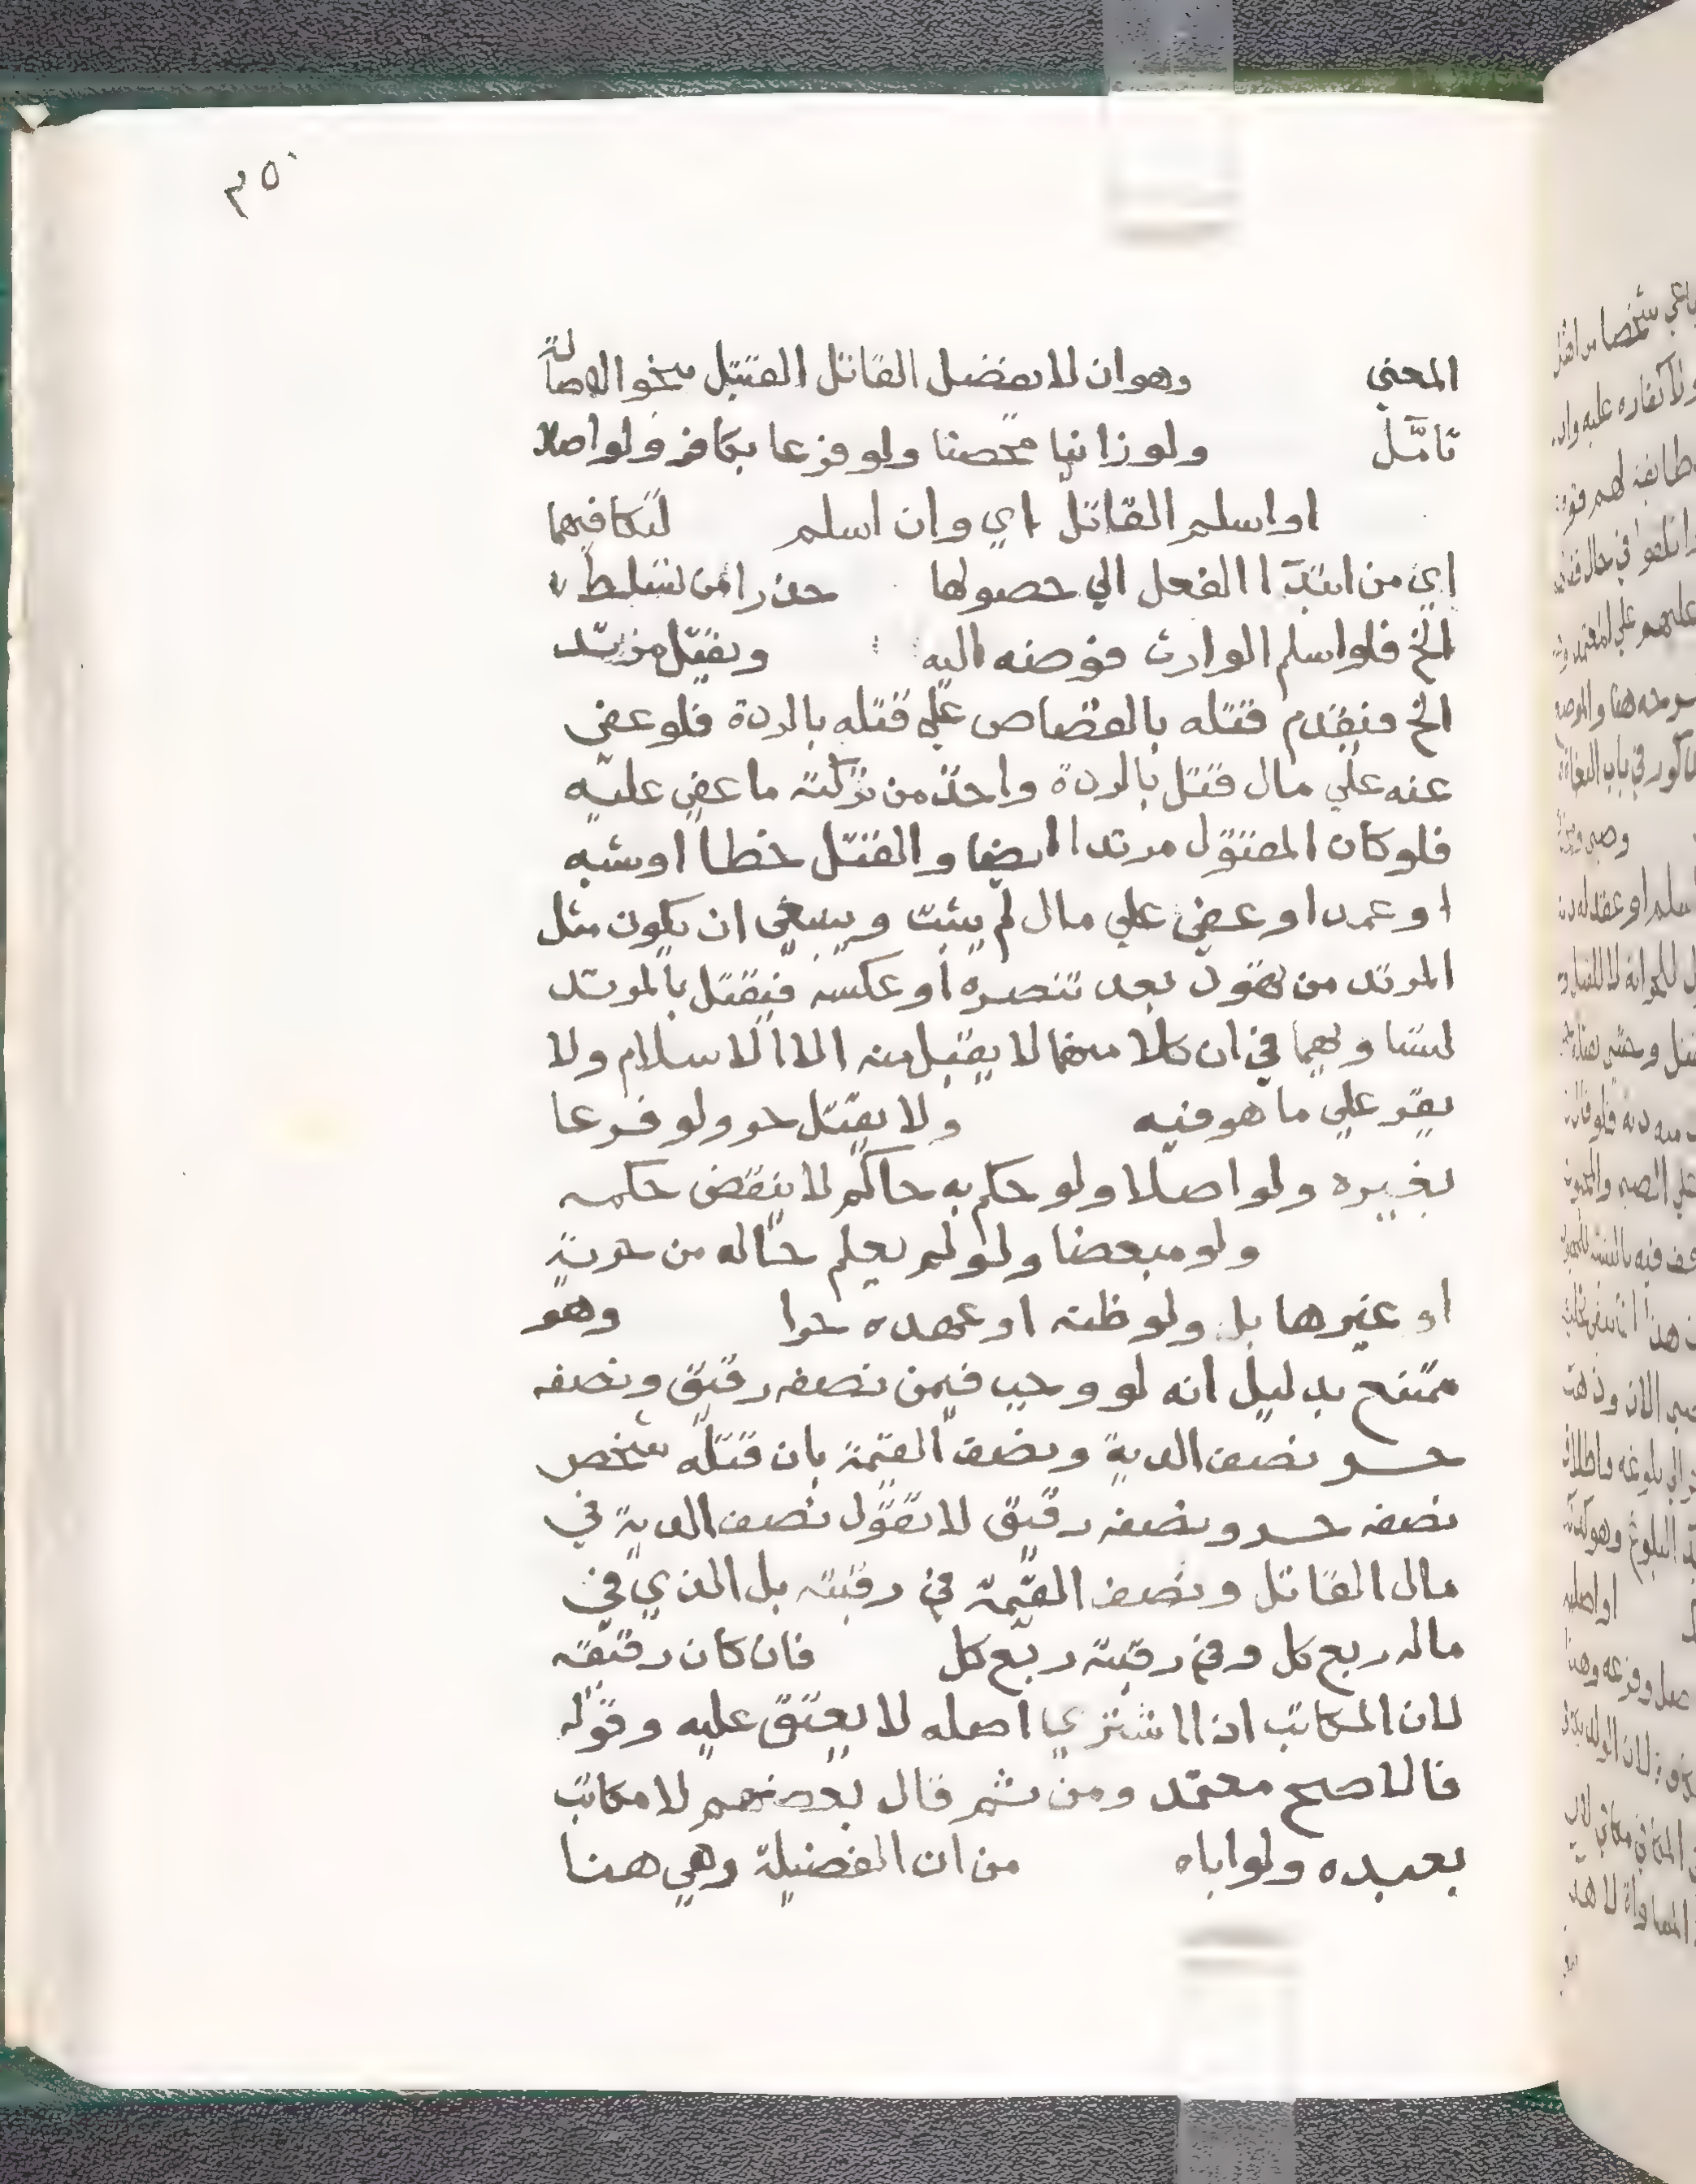 ٣٥٠
المعني وهوان لا يفضل القاتل القتيل بنحو الاصالة
تامل ولو زانيا محصنا ولو فرعا بكافر ولو اصلا
او اسلم القاتل اي وان اسلم لتكافيهما
اي من ابتدآ الفعل الي حصولها حذرا من تسليط
الخ فلو اسلم الوارث فوضه اليه ويقتل مرتد
الخ فيقدم قتله بالقصاص علي قتله بالردة فلو عفي
عنه علي مال قتل بالردة واخذ من تركته ما عفي عليه
فلو كان المقتول مرتدا ايضا والقتل خطا او شبه
او عمدا وعفي علي مال لم يثبت وينبغي ان يكون مثل
المرتد من تهود بعد تنصره او عكسه فيقتل بالمرتد
لتساويهما في ان كلا منهما لا يقبل منه الا الاسلام ولا
يقر علي ما هو فيه ولا يقتل حر ولو فرعا
بغيره ولو اصلا ولو حكم به حاكم لا ينقض حكمه
ولو مبعضا ولو لم يعلم حاله من حرية
او غيرها بل ولو ظنه او عهده حرا وهو
ممتنع بدليل انه لو وجب فيمن نصفه رقيق ونصفه
حر نصف الدية ونصف القيمة بان قتله شخص
نصفه حر ونصفه رقيق لا نقول نصف الدية في
مال القاتل ونصف القيمة في رقبته بل الذي في
ماله ربع كل وفي رقبته ربع كل فان كان رقيقه
لان المكاتب اذا اشتري اصله لا يعتق عليه وقوله
فالاصح معتمد ومن ثم قال بعضهم لا مكاتب
بعبده ولو اباه من ان الفضيلة وهي هنا